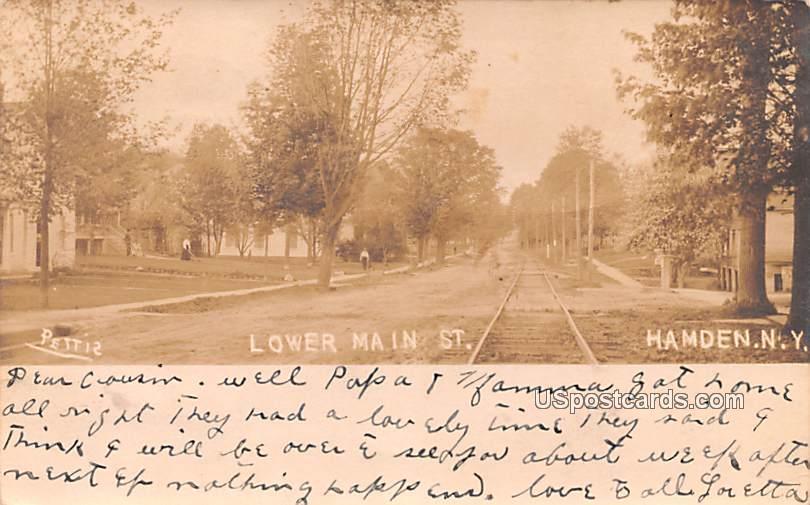 PETTIS
LOWER MAIN ST.
HAMDEN N.Y.
USpostcards.com
Dear Cousin. well Papa & Mamma Got home
all right They had a lovely time They said I
Think I will be over to see you about week after
next If nothing happens. love to all. Loretta